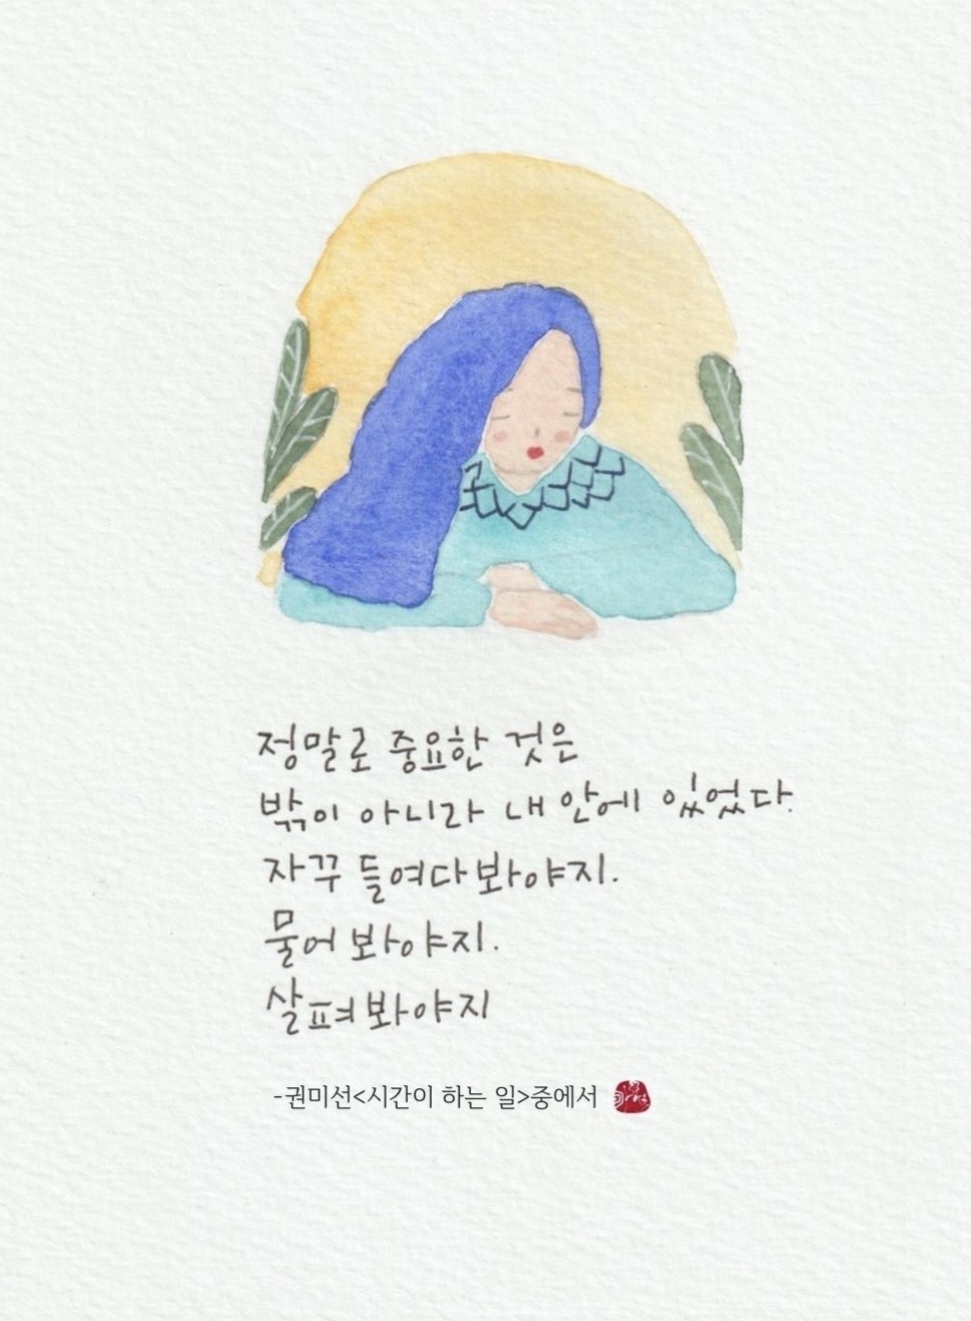 정말로 중요한 것은
밖이 아니라 내 안에 있었다.
자꾸 들여다봐야지.
물어봐야지.
살펴봐야지
-권미선<시간이 하는 일>중에서